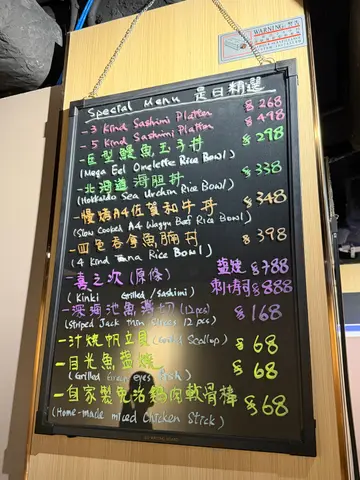 WARNING 警告
Special Menu 是日精選
- 3 Kind Sashimi Platter $268
- 5 Kind Sashimi Platter $498
- 巨型鰻魚玉子丼 $298
(Mega Eel Omelette Rice Bowl)
- 北海道海胆丼 $338
(Hokkaido Sea Urchin Rice Bowl)
- 慢烤A4佐賀和牛丼 $348
(Slow Cooked A4 Wagyu Beef Rice Bowl)
- 四色吞拿魚腩丼 $398
(4 Kind Tuna Rice Bowl)
- 喜之次 (原條) 鹽燒 $788
(Kinki Grilled / Sashimi) 刺/壽司 $888
- 深海池魚薄切 (12pcs) $168
(Striped Jack Thin Slices 12 pcs)
- 汁燒帆立貝 (Scallop) $68
- 目光魚鹽燒 $68
(Grilled Green eyes fish)
- 自家製免治雞肉軟骨棒 $68
(Home-made mixed Chicken Stick)